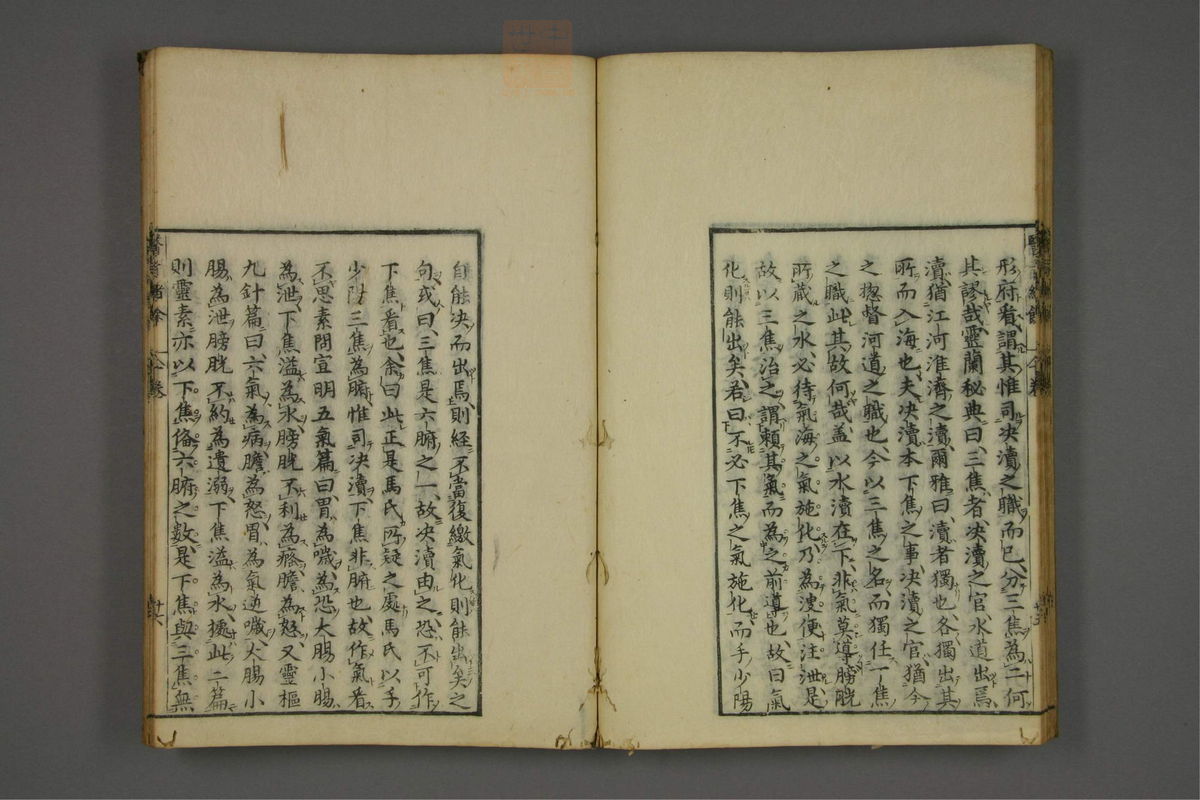 形府看謂其惟司决瀆之職而已分三焦為二何
其謬哉靈蘭秘典曰三焦者决瀆之官水道出焉
瀆猶江河淮濟之瀆爾雅曰瀆者獨也各獨出其
所而入海也夫决瀆本下焦之事决瀆之官猶今
之揔督河道之職也今以三焦之名而獨任下焦
之職此其故何哉盖以水瀆在下非氣莫導膀胱
所蔵之水必待氣海之氣施化乃為溲便注泄是
故以三焦治之謂頼其氣而為之前導也故曰氣
化則能出矣若曰不必下焦之氣施化而手少陽
自能决而出焉則経不當復繳氣化則能出矣之
句或曰三焦是六腑之一故决瀆由之恐不可作
下焦看也余曰此正是馬氏所疑之處馬氏以手
少陽三焦為腑惟司决瀆下焦非腑也故作氣看
不思素問宣明五氣篇曰胃為噦為恐大腸小腸
為泄下焦溢為水膀胱不利為癃膽為怒又靈樞
九針篇曰六氣為病膽為怒胃為氣逆噦大腸小
腸為泄膀胱不約為遺溺下焦溢為水據此二篇
則靈素亦以下焦俻六腑之数是下焦與三焦無